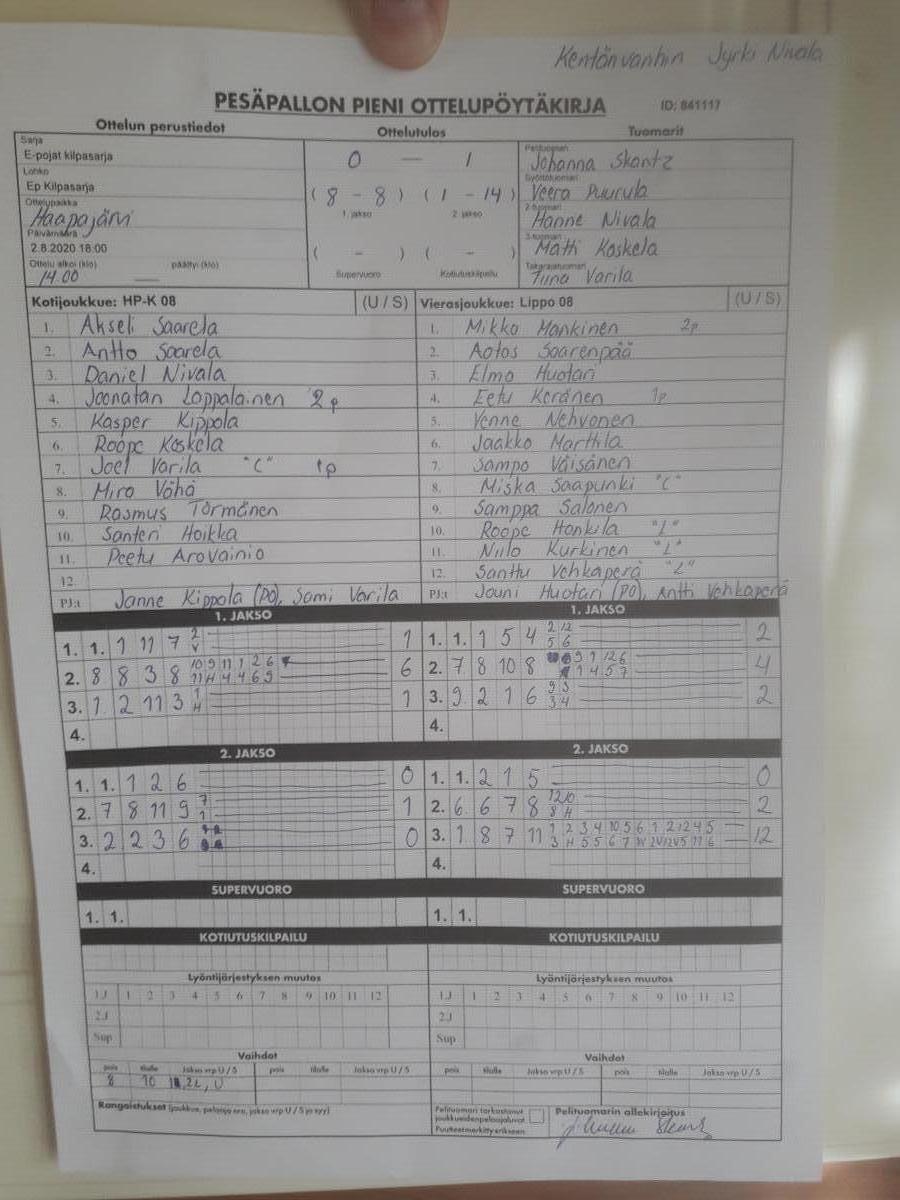 Kentänvanhin Jyrki Nivala
PESÄPALLON PIENI OTTELUPÖYTÄKIRJA ID: 841117
Ottelun perustiedot Ottelutulos Tuomarit
Sarja
E-pojat kilpasarja
Lohko
Ep Kilpasarja
Ottelupaikka
Haapajärvi
Päivämäärä
2.8.2020 18:00
Ottelu alkoi (klo) päättyi (klo)
14.00 —
0 — 1
(8 - 8) (1 - 14)
1. jakso 2. jakso
( - ) ( - )
Supervuoro Kotiutuskilpailu
Pelituomari
Johanna Skantz
Syöttötuomari
Veera Puurula
2-tuomari
Hanne Nivala
3-tuomari
Matti Koskela
Takarajatuomari
Tiina Varila
Kotijoukkue: HP-K 08 (U / S)
1. Akseli Saarela
2. Antto Saarela
3. Daniel Nivala
4. Joonatan Loppalainen 2p
5. Kasper Kippola
6. Roope Koskela
7. Joel Varila "C" 1p
8. Miro Vähä
9. Rasmus Törmänen
10. Santeri Hoikka
11. Peetu Arovainio
12.
PJ:t Janne Kippola (PO), Sami Varila
Vierasjoukkue: Lippo 08 (U / S)
1. Mikko Mankinen 2p
2. Aatos Saarenpää
3. Elmo Huotari
4. Eetu Keränen 1p
5. Venne Nehvonen
6. Jaakko Marttila
7. Sampo Väisänen
8. Miska Saapunki "C"
9. Samppa Salonen
10. Roope Honkila "L"
11. Niilo Kurkinen "L"
12. Santtu Vehkaperä "L"
PJ:t Jouni Huotari (PO), Antti Vehkaperä
1. JAKSO 1. JAKSO
1. 1. 1 11 7 2 1
V
2. 8 8 3 8 10 9 11 1 2 6 6
11 H 4 4 6 9
3. 1 2 11 3 1 1
H
4.
1. 1. 1 5 4 2 12 2
5 6
2. 7 8 10 8 9 1 12 6 4
1 4 5 7
3. 9 2 1 6 9 3 2
3 4
4.
2. JAKSO 2. JAKSO
1. 1. 1 2 6 0
2. 7 8 11 9 7 1
1
3. 2 2 3 6 0
4.
1. 1. 2 1 5 0
2. 6 6 7 8 12 10 2
8 H
3. 1 8 7 11 1 2 3 4 10 5 6 1 2 12 4 5 12
3 H 5 5 6 7 11 6
4.
SUPERVUORO SUPERVUORO
1. 1. 1. 1.
KOTIUTUSKILPAILU KOTIUTUSKILPAILU
Lyöntijärjestyksen muutos Lyöntijärjestyksen muutos
1J 1 2 3 4 5 6 7 8 9 10 11 12 1J 1 2 3 4 5 6 7 8 9 10 11 12
2J 2J
Sup Sup
Vaihdot Vaihdot
pois tilalle Jakso vrp U / S pois tilalle Jakso vrp U / S pois tilalle Jakso vrp U / S pois tilalle Jakso vrp U / S
8 10 2L, U
Rangaistukset (joukkue, pelaaja nro, jakso vrp U / S ja syy)
Pelituomari tarkastanut
joukkueiden pelaajaluvat
Puutteet merkitty erikseen
Pelituomarin allekirjoitus